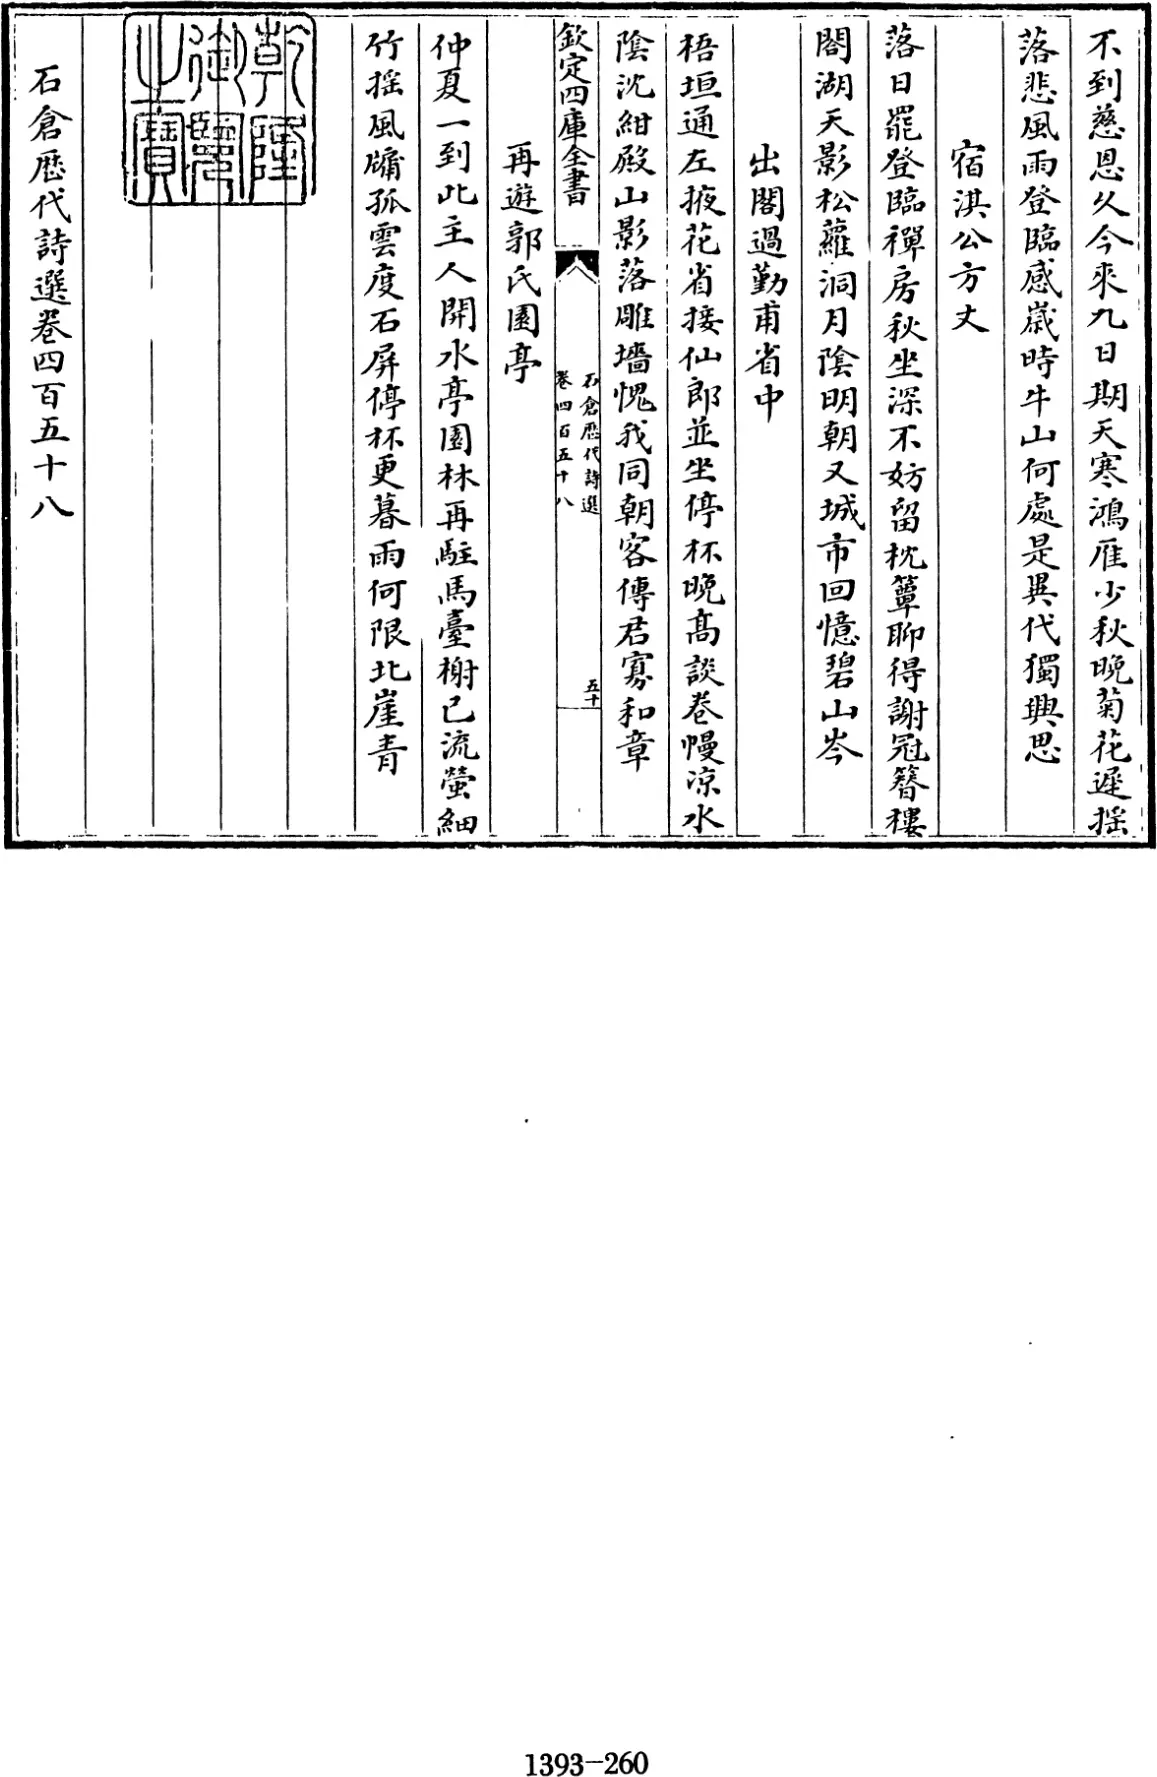 不到慈恩久今來九日期天寒鴻雁少秋晩菊花遲揺
落悲風雨登臨感歳時牛山何處是異代獨興思
宿淇公方丈
落日罷登臨禪房秋坐深不妨留枕簟聊得謝冠簪樓
閣湖天影松蘿洞月陰明朝又城市回憶碧山岑
出閣過勤甫省中
梧垣通左掖花省接仙郎並坐停杯晩髙談巻幔凉水
陰沈紺殿山影落雕墻愧我同朝客傳君寡和章
欽定四庫全書
石倉歴代詩選
卷四百五十八
五十
再遊郭氏園亭
仲夏一到此主人開水亭園林再駐馬臺榭已流螢細
竹揺風牗孤雲度石屏停杯更暮雨何限北崖青
乾隆
御覽
之寳
石倉歴代詩選卷四百五十八
1393-260